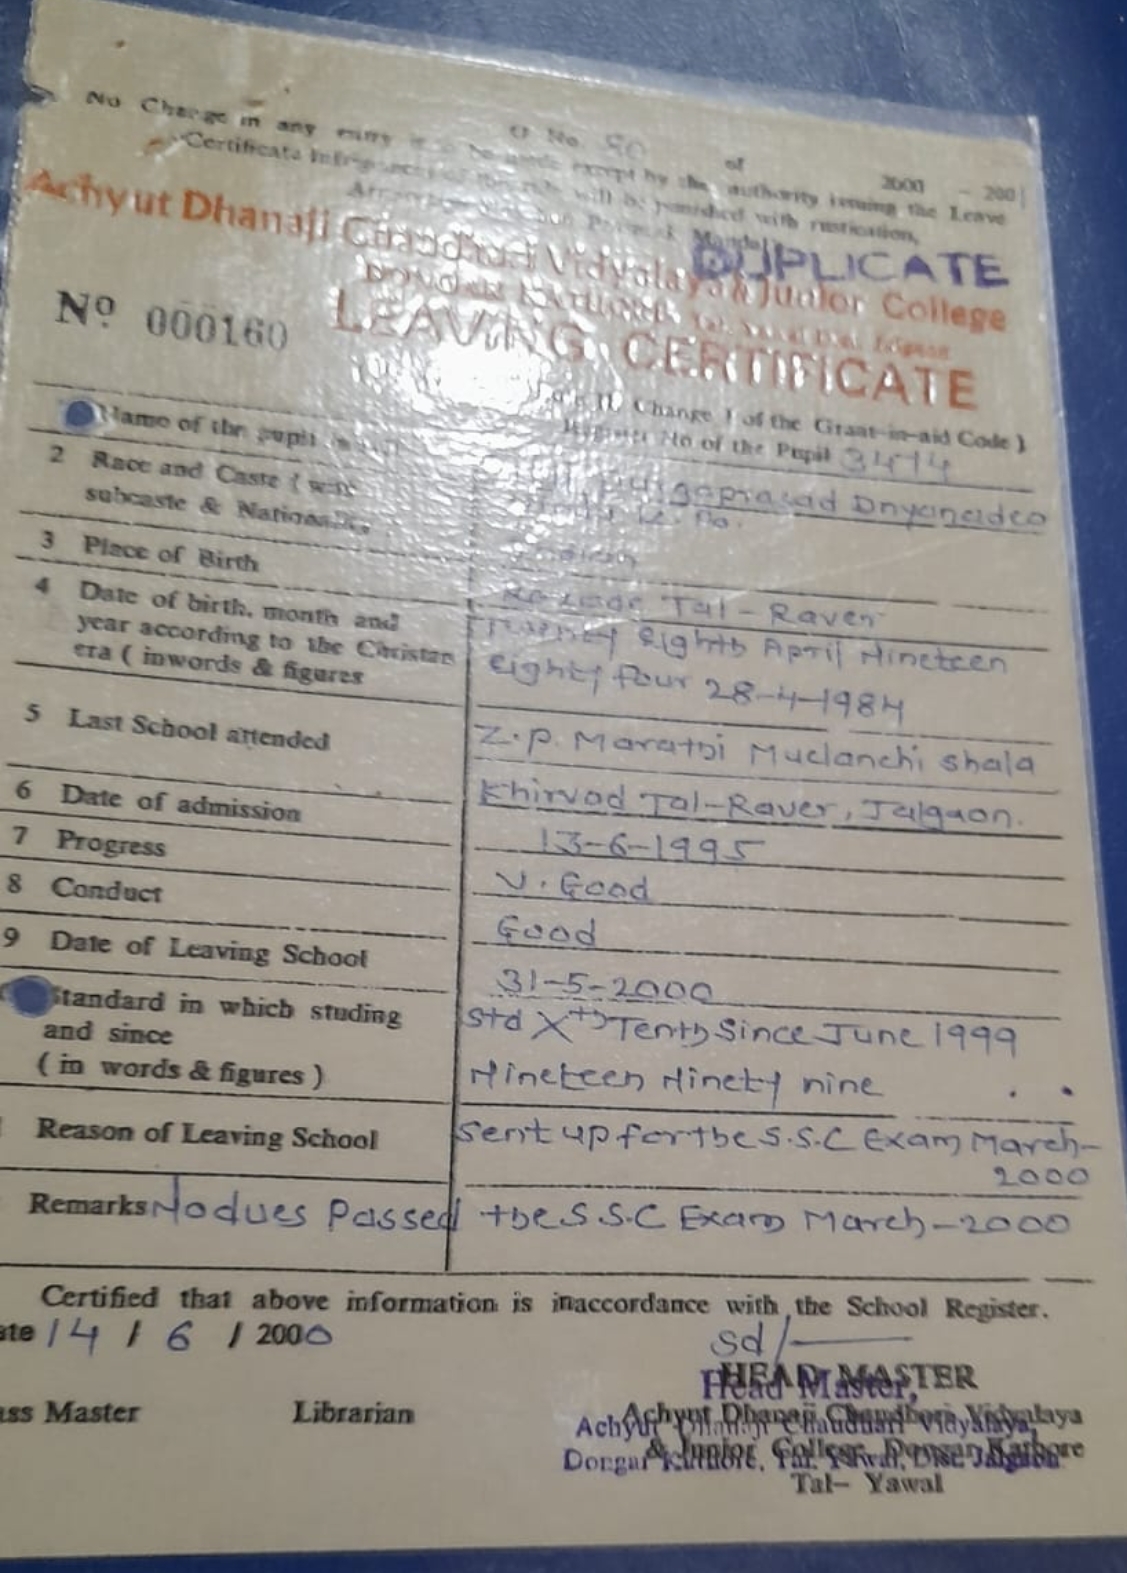 G No. 50 of 2000 - 2001
No Change in any entry is to be made except by the authority issuing the Leave
Certificate will be punished with rustication,
Mandal
DUPLICATE
Achyut Dhanaji Chaudhari Vidyalaya & Junior College
Tal. Yawal Dist. Jalgaon
Nº 000160
LEAVING CERTIFICATE
Change 1 of the Grant-in-aid Code )
Register No of the Pupil 3414
Name of the pupil
Dnyanadeo
2 Race and Caste ( with
subcaste &
Indian
3 Place of Birth
Tal - Raver
4 Date of birth, month and
year according to the Christan
era ( inwords & figures
Twenty Eighth April Nineteen
eighty four 28-4-1984
5 Last School attended
Z.P. Marathi Muclanchi shala
Khirvad Tal-Raver, Jalgaon.
6 Date of admission
13-6-1995
7 Progress
V. Good
8 Conduct
Good
9 Date of Leaving School
31-5-2000
Standard in which studing
and since
( in words & figures )
Std Xth Tenth Since June 1999
Nineteen Ninety nine
Reason of Leaving School
Sent up for the S.S.C Exam March-
2000
Remarks Nodues Passed the S.S.C Exam March-2000
Certified that above information is inaccordance with the School Register.
ate 14 / 6 / 2000
sd/-
HEAD MASTER
Head Master,
ass Master Librarian
Achyut Dhanaji Chaudhari Vidyalaya
Achyut Dhanaji Chaudhari Vidyalaya,
& Junior College, Dongar Kathore
Dongar Kathore, Tal. Yawal, Dist. Jalgaon
Tal- Yawal